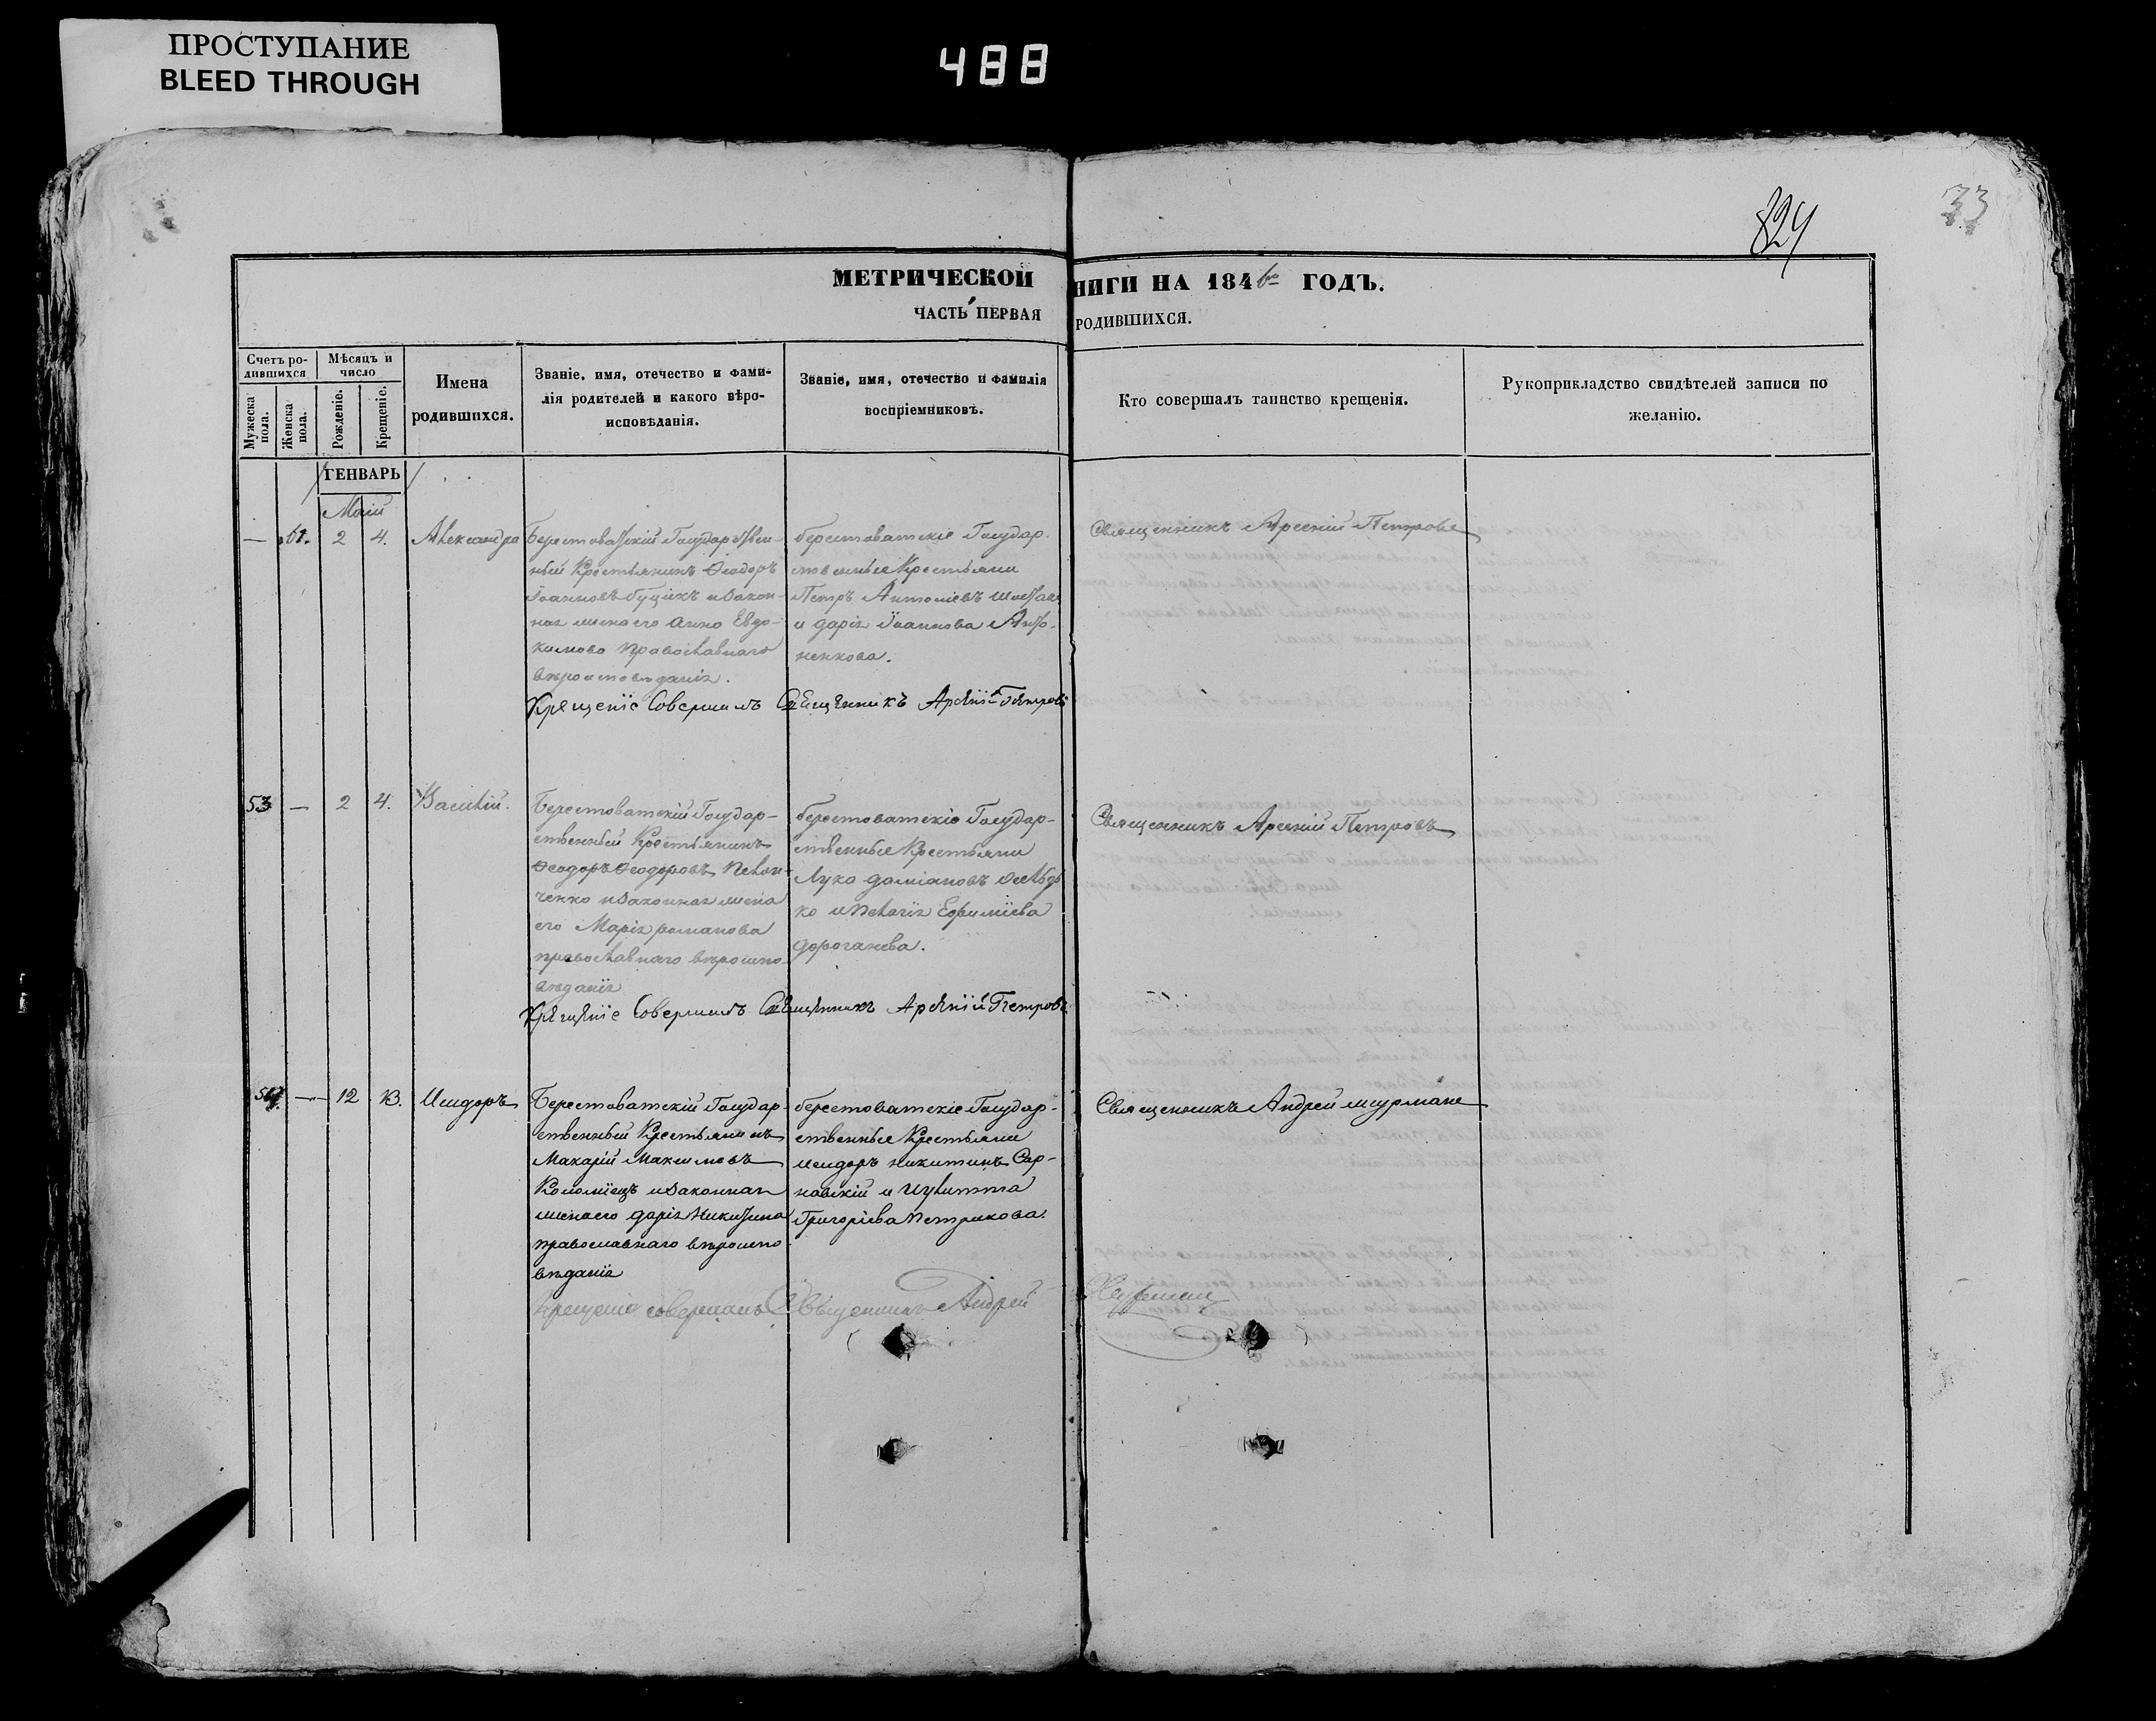 ПРОСТУПАНИЕ
BLEED THROUGH
488
824
33
МЕТРИЧЕСКОЙ
НИГИ НА 1846 ГОДЪ.
ЧАСТЬ ПЕРВАЯ
РОДИВШИХСЯ.
Счетъ ро-
дившихся
Мѣсяцъ и
число
Мужеска
пола.
Женска
пола.
Рожденіе.
Крещеніе.
Имена
родившихся.
Званіе, имя, отечество и фами-
лія родителей и какого вѣро-
исповѣданія.
Званіе, имя, отечество и фамилія
воспріемниковъ.
Кто совершалъ таинство крещенія.
Рукоприкладство свидѣтелей записи по
желанію.
ГЕНВАРЬ
Маій
— 2 4. Александра
Берестоватскій Государствен-
ный Крестьянинъ Ѳеодоръ
Іоанновъ Буцикъ и закон-
ная жена его Анна Евдо-
кимова православнаго
вѣроисповѣданія.
берестоватскіе Государ-
ственные Крестьяни
Петръ Антоніевъ
и даріа Іоаннова
ненкова.
Священникъ Арсеній Петровъ
Крещеніе Совершилъ Священникъ Арсеній Петровъ
53 — 2 4. Василій.
Берестоватскій Государ-
ственный Крестьянинъ
Ѳеодоръ Ѳеодоровъ
ченко и законная жена
его Маріа романова
православнаго вѣроиспо-
вѣданія
берестоватскіе Государ-
ственные Крестьяни
Лука даміановъ
ко и Пелагія Ефиміева
дороганева.
Священникъ Арсеній Петровъ
Крещеніе Совершилъ Священникъ Арсеній Петровъ
54. — 12 13. Исидоръ
Берестоватскій Государ-
ственный Крестьянинъ
Макарій Максимовъ
Коломіецъ и законная
жена его даріа Никитина
православнаго вѣроиспо-
вѣданія
берестоватскіе Государ-
ственные Крестьяни
исидоръ никитинъ Сар-
навскій и Иулитта
Григоріева Петрикова.
Священникъ Андрей
Крещеніе совершалъ Священникъ Андрей